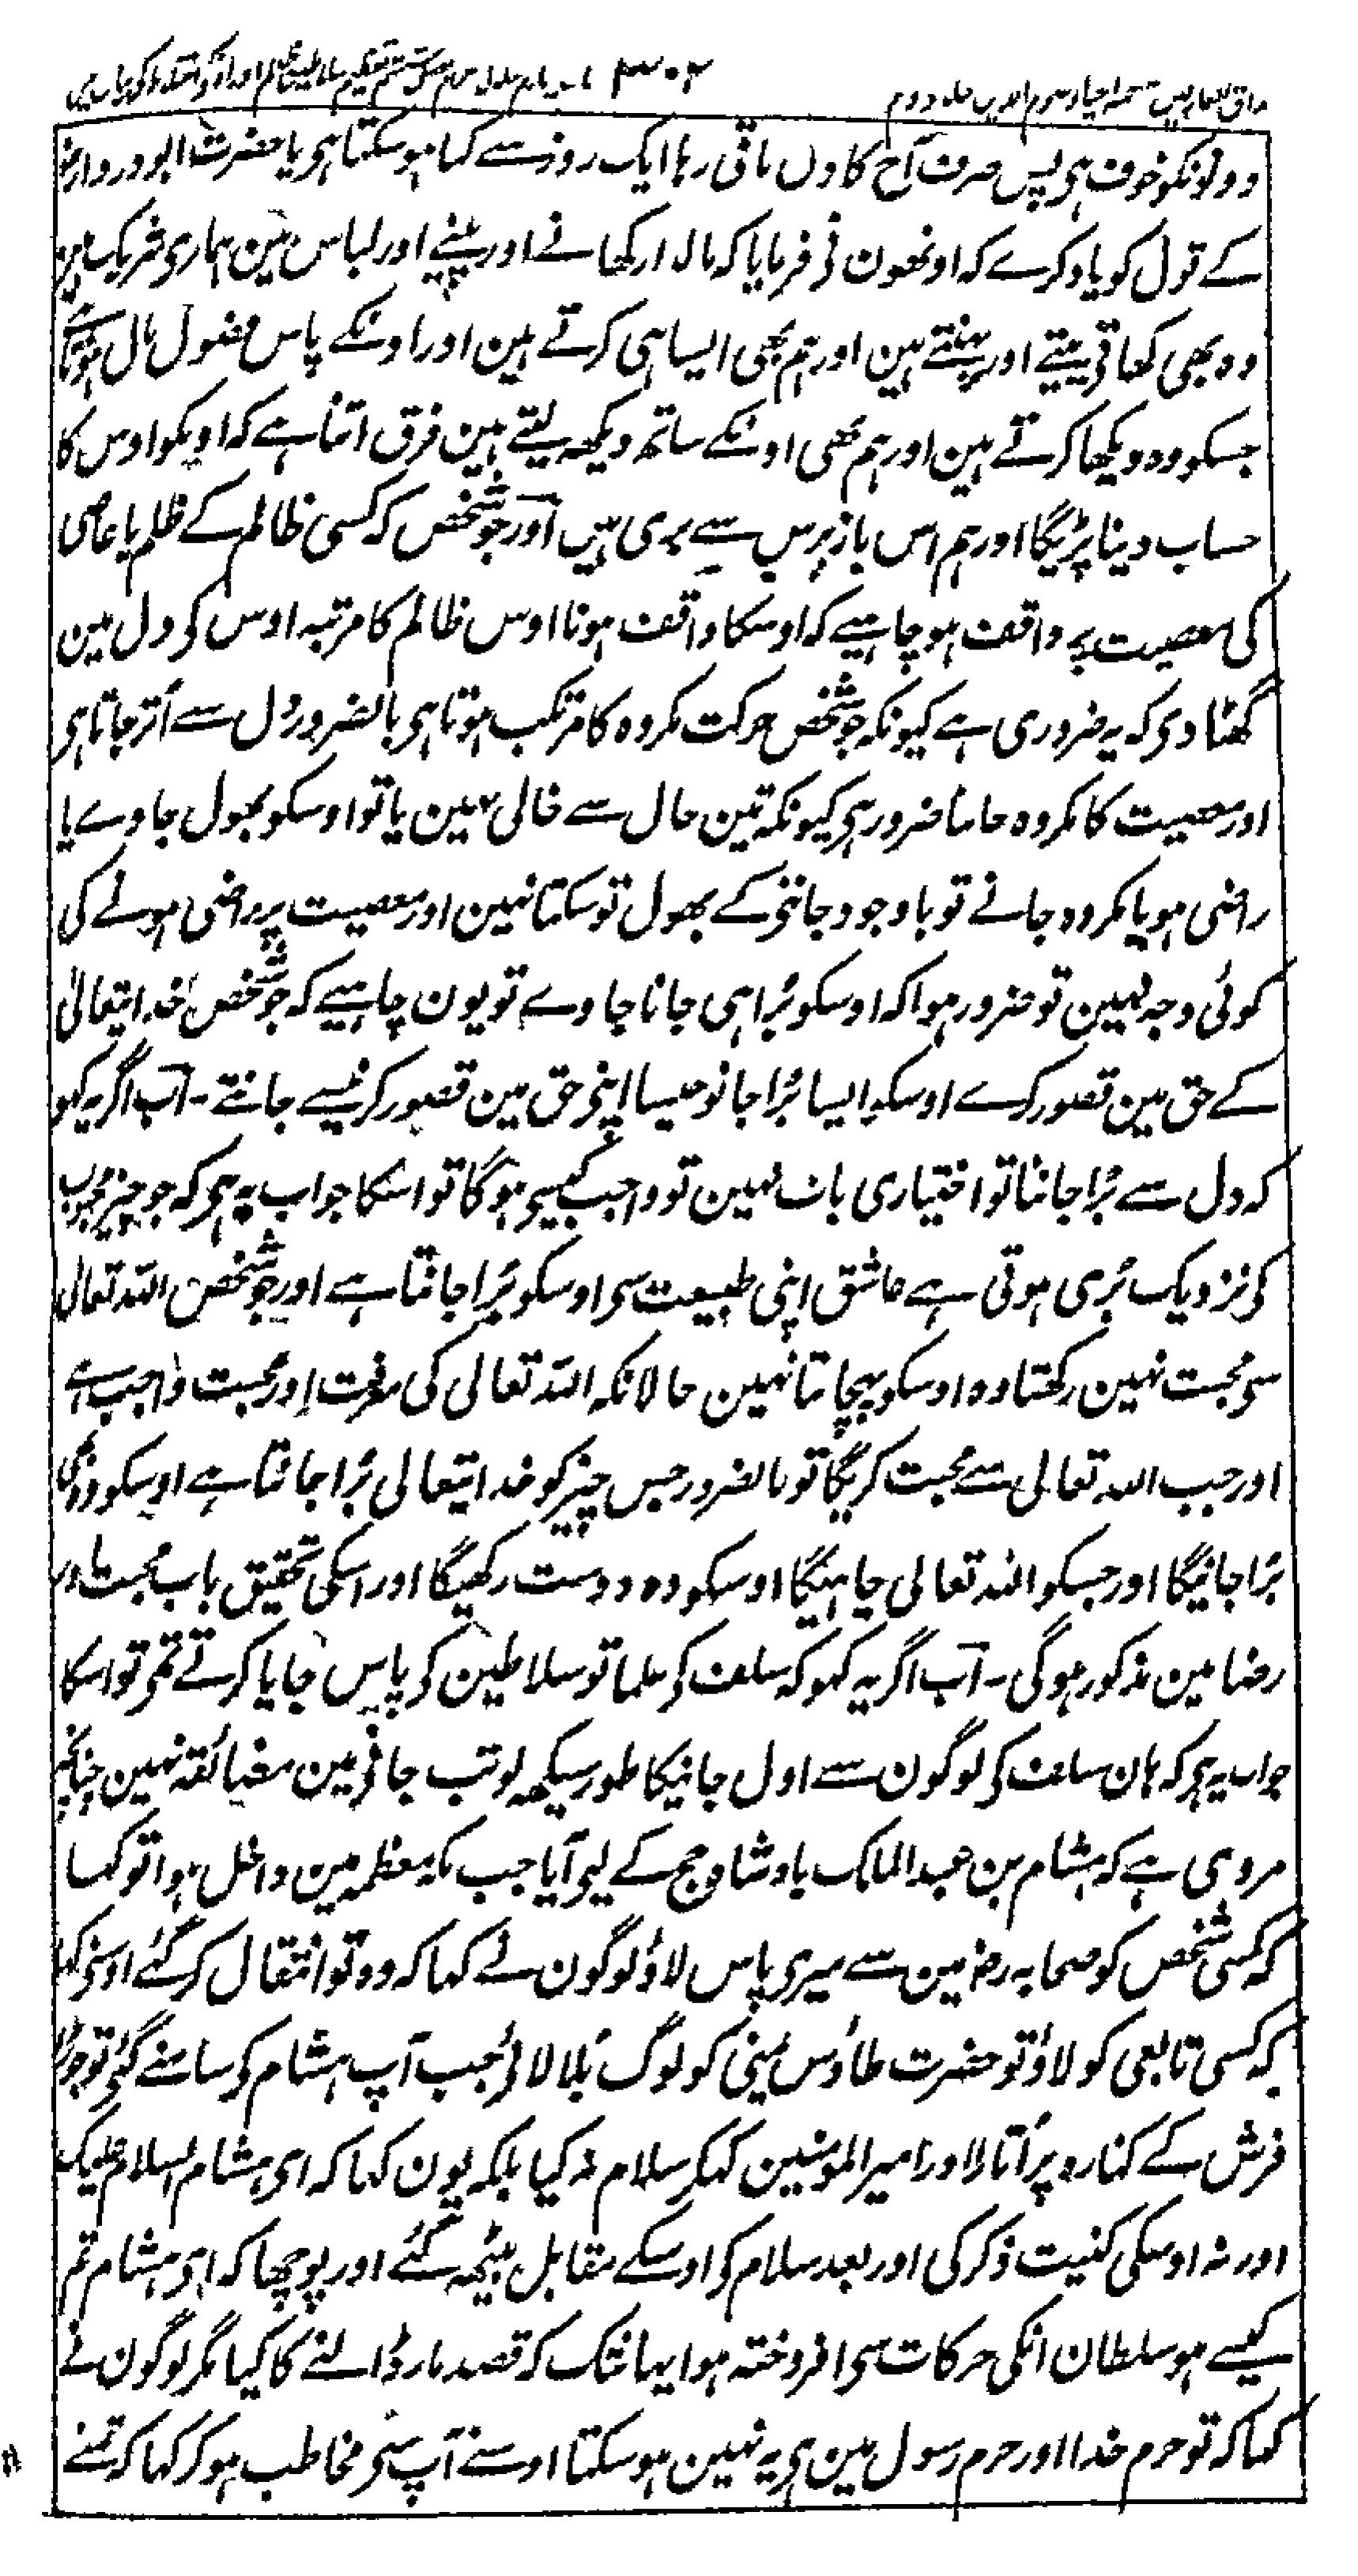 مذاق العارفین ترجمہ احیاء علوم الدین جلد دوم ۳۰۲
دونونکو خوف ہی پس صرف آج کا دن باقی رہا ایک روز سے کیا ہو سکتا ہی یا حضرت ابو درداء رض
کے قول کو یاد کرے کہ اونھون نی فرمایا کہ مالدار کھانے اور پینے اور لباس مین ہماری شریک ہین
وہ بھی کھاتی پیتے اور پہنتے ہین اور ہم بھی ایسا ہی کرتے ہین اور اونکے پاس فضول مال ہوتا ہے
جسکو وہ دیکھا کرتے ہین اور ہم بھی اونکے ساتھ دیکھہ لیتے ہین فرق اتنا ہے کہ اونکو اوس کا
حساب دینا پڑیگا اور ہم اس باز پرس سے بری ہین اور جو شخص کہ کسی ظالم کے ظلم یا عاصی
کی معصیت پر واقف ہو چاہیے کہ اوسکا واقف ہونا اوس ظالم کا مرتبہ اوس کی دل مین
گھٹا دی کہ یہ ضروری ہے کیونکہ جو شخص حرکت مکروہ کا مرتکب ہوتا ہی بالضرور دل سے اُتر جاتا ہی
اور معصیت کا مکروہ جاننا ضرور ہی کیونکہ تین حال سے خالی نہین یا تو اوسکو بھول جاوے یا
راضی ہو یا مکروہ جانے تو باوجود جاننی کے بھول تو سکتا نہین اور معصیت پر راضی ہونے کی
کوئی وجہ نہین تو ضرور ہوا کہ اوسکو بُرا ہی جانا جاوے تو یون چاہیے کہ جو شخص خدایتعالیٰ
کے حق مین قصور کرے اوسکو ایسا بُرا جانو جیسا اپنی حق مین قصور کرنیسے جانتے ۔ اب اگر یہ کہو
کہ دل سے بُرا جاننا تو اختیاری بات نہین تو واجب کیسی ہوگا تو اسکا جواب یہ ہی کہ جو چیز محبوب
کی نزدیک بُری ہوتی ہے عاشق اپنی طبیعت سی اوسکو بُرا جانتا ہے اور جو شخص اللہ تعالی
سی محبت نہین رکھتا وہ اوسکو پہچانتا نہین حالانکہ اللہ تعالی کی معرفت اور محبت واجب ہے
اور جب اللہ تعالی سے محبت کریگا تو بالضرور جس چیز کو خدایتعالی بُرا جانتا ہے اوسکو وہ بھی
بُرا جانیگا اور جسکو اللہ تعالی چاہیگا اوسکو وہ دوست رکھیگا اور اسکی تحقیق باب محبت اور
رضا مین مذکور ہوگی ۔ اب اگر یہ کہو کہ سلف کی علما تو سلاطین کی پاس جایا کرتے تھی تو اسکا
جواب یہ ہی کہ ہان سلف کی لوگون سے اول جانیکا طور سیکھہ لو تب جانی مین مضائقہ نہین چنانچہ
مروی ہے کہ ہشام بن عبد الملک بادشاہ حج کے لیی آیا جب مکہ معظمہ مین داخل ہوا تو کہا
کہ کسی شخص کو صحابہ رض مین سے میری پاس لاؤ لوگون نے کہا کہ وہ تو انتقال کر گئے اوسنی کہا
کہ کسی تابعی کو لاؤ تو حضرت طاؤس یمنی کو لوگ بُلا لائی جب آپ ہشام کی سامنے گئی تو جوتا
فرش کے کنارہ پر اُتارا اور امیر المومنین کہکر سلام نہ کیا بلکہ یون کہا کہ ای ہشام السلام علیک
اور نہ اوسکی کنیت ذکر کی اور بعد سلام کی اوسکے مقابل بیٹھہ گئے اور پوچھا کہ ای ہشام تم
کیسے ہو سلطان انکی حرکات سی افروختہ ہوا یہانتک کہ قصد مار ڈالنے کا کیا مگر لوگون نے
کہا کہ تو حرم خدا اور حرم رسول مین ہی یہ نہین ہو سکتا اوسنے آپ سی مخاطب ہو کر کہا کہ تمنے